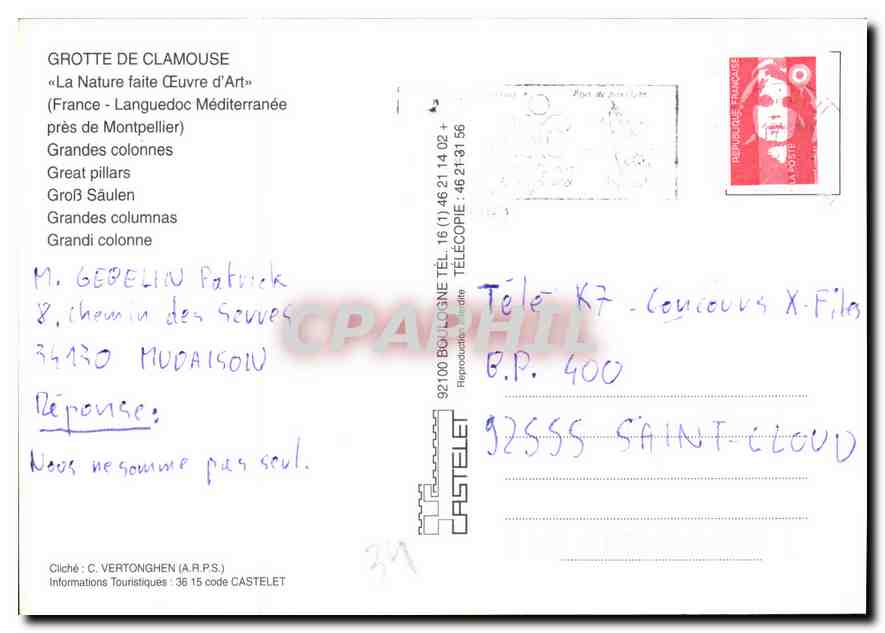 GROTTE DE CLAMOUSE
«La Nature faite Œuvre d'Art»
(France - Languedoc Méditerranée
près de Montpellier)
Grandes colonnes
Great pillars
Groß Säulen
Grandes columnas
Grandi colonne
M. GEBELIN Patrick
8, chemin des
34130 MUDAISON
Réponse:
Nous ne somme pas seul.
Cliché : C. VERTONGHEN (A.R.P.S.)
Informations Touristiques : 36 15 code CASTELET
34
CASTELET
92100 BOULOGNE TÉL. 16 (1) 46 21 14 02 +
Reproduction interdite TÉLÉCOPIE : 46 21 31 56
CPAPHIL
RÉPUBLIQUE FRANÇAISE
LA POSTE
Télé K7 - Concours X-Files
B.P. 400
92555 SAINT-CLOUD